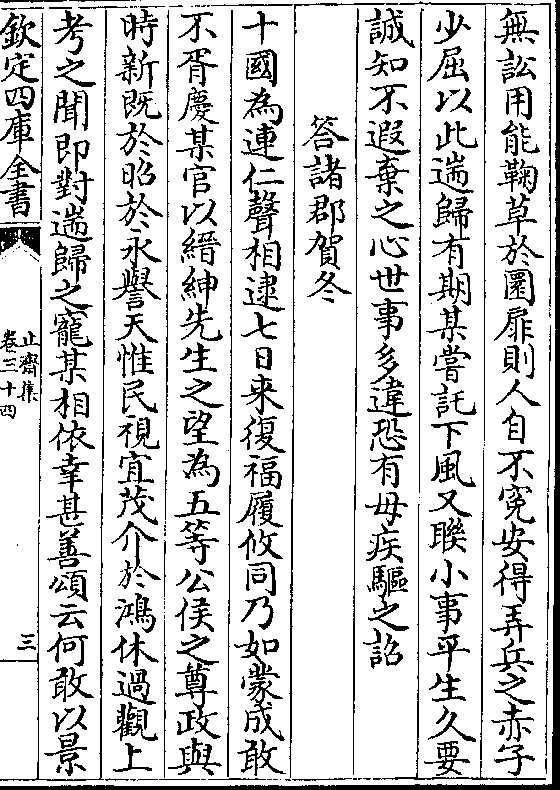 無訟用能鞠草於圜扉則人自不冤安得弄兵之赤子
少屈以此遄歸有期某嘗託下風又聨小事平生久要
誠知不遐棄之心世事多違恐有毋疾驅之詔
答諸郡賀冬
十國為連仁聲相逮七日来復福履攸同乃如蒙成敢
不胥慶某官以縉紳先生之望為五等公侯之尊政與
時新既於昭於永譽天惟民視宜茂介於鴻休過觀上
考之聞即對遄歸之寵某相依幸甚善頌云何敢以景
欽定四庫全書
止齋集
卷三十四
三